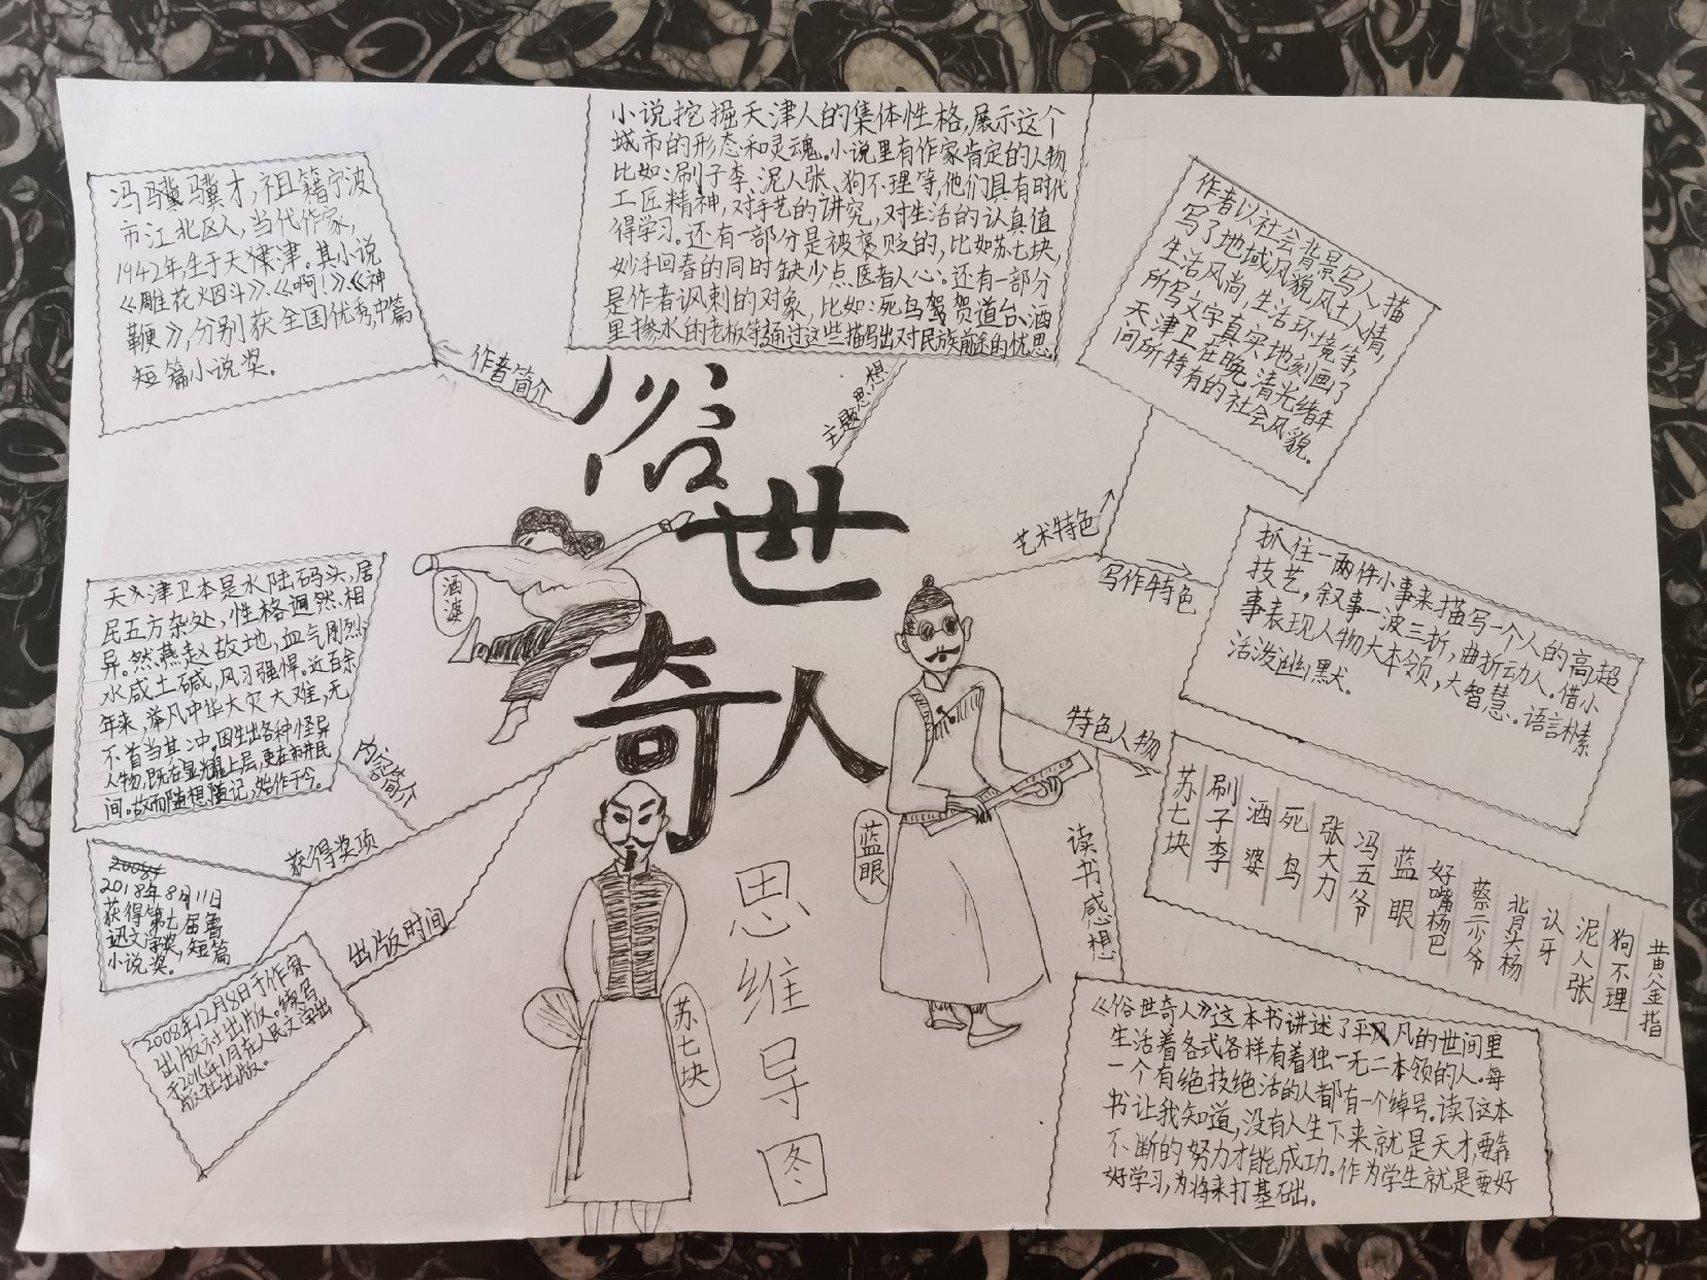 俗世奇人
思维导图
冯骥骥才,祖籍宁波
市江北区人,当代作家,
1942年,生于天津。其小说
《雕花烟斗》、《啊!》、《神
鞭》,分别获全国优秀,中篇
短篇小说奖。
作者简介
小说挖掘天津人的集体性格,展示这个
城市的形态和灵魂。小说里有作家肯定的人物
比如:刷子李、泥人张、狗不理等,他们具有时代
工匠精神,对手艺的讲究,对生活的认真值
得学习。还有一部分是被褒贬的,比如苏七块,
妙手回春的同时缺少点医者人心:还有一部分
是作者讽刺的对象,比如:死鸟驾贺道台、酒
里掺水的老板等通过这些描写出对民族前途的忧思。
主题思想
作者以社会背景写人,描
写了地域风貌风土人情,
生活风尚,生活环境等,
所写文字真实地刻画了
天津卫在晚清光绪年
间所特有的社会风貌。
艺术特色
写作特色
抓住一两件小事来描写一个人的高超
技艺,叙事一波三折,曲折动人。借小
事表现人物大本领,大智慧。语言朴素
活泼幽默。
特色人物
苏七块
刷子李
酒婆
死鸟
张大力
冯五爷
蓝眼
好嘴杨巴
蔡二少爷
背头杨
认牙
泥人张
狗不理
黄金指
读书感想
《俗世奇人》这本书讲述了平凡的世间里
生活着各式各样有着独一无二本领的人。每
一个有绝技绝活的人都有一个绰号。读了这本
书让我知道,没有人生下来就是天才,要靠
不断的努力才能成功。作为学生就是要好
好学习,为将来打基础。
酒婆
蓝眼
苏七块
天津卫本是水陆码头,居
民五方杂处,性格迥然相
异。然燕赵故地,血气刚烈
水咸土碱,风习强悍。近百余
年来,举凡中华大灾大难,无
不首当其冲。因生出各种怪异
人物,既在显耀上层,更在市井民
间。故而随想随记,始作于今。
内容简介
获得奖项
2018年8月11日
获得第七届鲁
迅文学奖,短篇
小说奖。
出版时间
2008年12月8日于作家
出版社出版。续写
于2016年1月在人民文学出
版社出版。